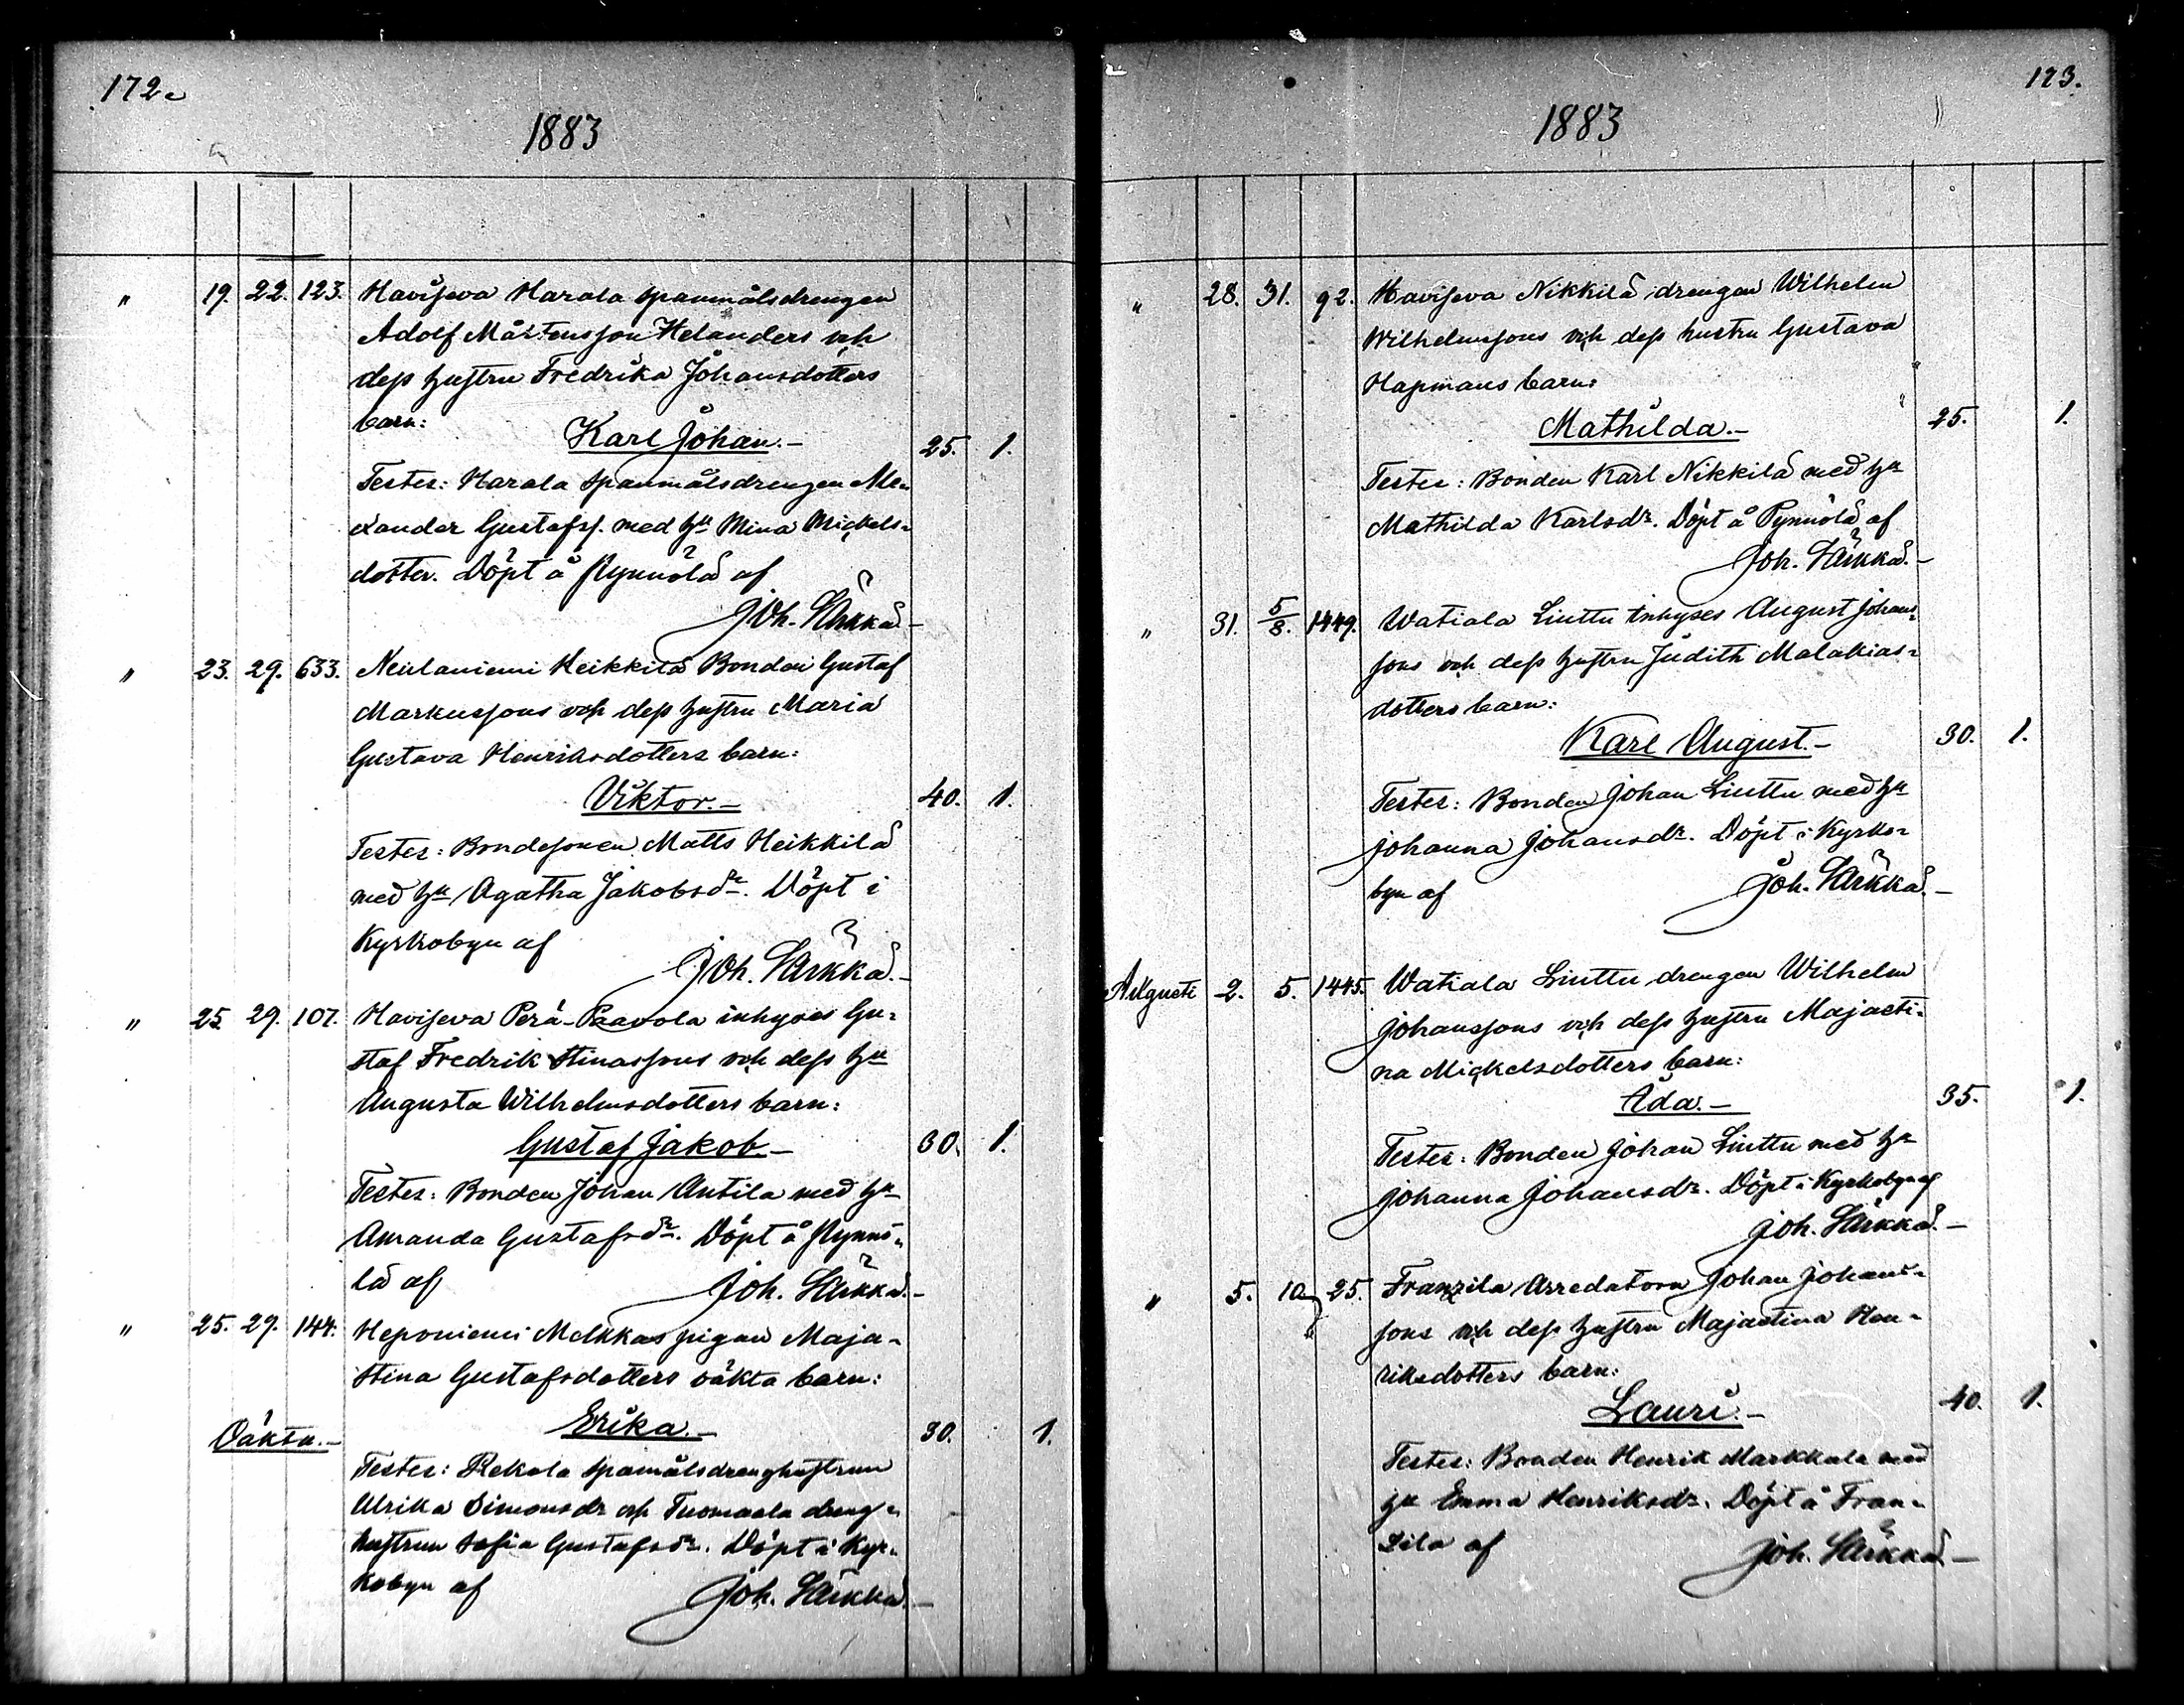 172.
1883
" 19. 22. 123. Haviseva Harala spanmålsdrengen
Adolf Mårtensson Helanders och
dess hustru Fredrika Johansdotters
barn:
Karl Johan.- 25. 1.
Testes: Harala spanmålsdrengen Ale-
xander Gustafss. med hu Mina Mickels-
dotter. Döpt å Pynnölä af
Joh. Särkkä.-
" 23. 29. 633. Neulaniemi Heikkilä Bonden Gustaf
Markussons och dess hustru Maria
Gustava Henriksdotters barn:
Viktor.- 40. 1.
Testes: Bondesonen Matts Heikkilä
med hu Agatha Jakobsdr. Döpt i
Kyrkobyn af
Joh. Särkkä.-
" 25. 29. 107. Haviseva Perä-Paavola inhyses Gu-
staf Fredrik Stinassons och dess hu
Augusta Wilhelmsdotters barn:
Gustaf Jakob.- 30. 1.
Testes: Bonden Johan Antila med hu
Amanda Gustafsdr. Döpt å Pynnö-
lä af Joh. Särkkä.-
" 25. 29. 144. Heponiemi Melkkas pigan Maja-
Stina Gustafsdotters oäkta barn:
Oäkta.- Erika.- 30. 1.
Testes: Rekola spanmålsdrenghustrun
Ulrika Simonsdr och Tuomaala dreng-
hustrun Sofia Gustafsdr. Döpt i Kyr-
kobyn af Joh. Särkkä.-
173.
1883
" 28. 31. 92. Haviseva Nikkilä drengen Wilhelm
Wilhelmssons och dess hustru Gustava
Hapmans barn:
Mathilda.- 25. 1.
Testes: Bonden Karl Nikkilä med hu
Mathilda Karlsdr. Döpt å Pynnölä af
Joh. Särkkä.-
" 31. 5/8. 1449. Watiala Liuttu inhyses August Johans-
sons och dess hustru Judith Malakias-
dotters barn:
Karl August.- 30. 1.
Testes: Bonden Johan Liuttu med hu
Johanna Johansdr. Döpt i Kyrko-
byn af Joh. Särkkä.-
Augusti 2. 5. 1445. Watiala Liuttu drengen Wilhelm
Johanssons och dess hustru Majasti-
na Mickelsdotters barn:
Ada.- 35. 1.
Testes: Bonden Johan Liuttu med hu
Johanna Johansdr. Döpt i Kyrkobyn af
Joh. Särkkä.-
" 5. 10 25. Franzila Arrendatorn Johan Johans-
sons och dess hustru Majastina Hen-
riksdotters barn:
Lauri.- 40. 1.
Testes: Bonden Henrik Markkula med
hu Emma Henriksdr. Döpt å Fran-
zila af Joh. Särkkä.-